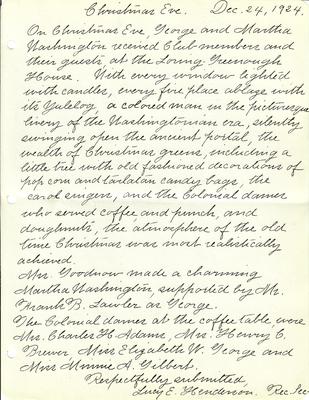 Christmas Eve. Dec. 24, 1924.
On Christmas Eve, George and Martha
Washington received Club members and
their guests, at the Loring-Greenough
House. With every window lighted
with candles, every fire place ablaze with
its Yulelog, a colored man in the picturesque
livery of the Washingtonian era, silently
swinging open the ancient portal, the
wealth of Christmas greens, including a
little tree with old fashioned decorations of
pop corn and tarlatan candy bags, the
carol singers, and the Colonial dames
who served coffee and punch, and
doughnuts, the atmosphere of the old
time Christmas was most realistically
achieved.
Mrs. Goodnow made a charming
Martha Washington, supported by Mr.
Frank B. Lawler as George.
The Colonial dames at the coffee table were
Mrs. Charles H. Adams, Mrs. Henry C.
Brewer, Miss Elizabeth W. George and
Miss Minnie A. Gilbert.
Respectfully submitted,
Lucy E. Henderson. Rec. Sec.